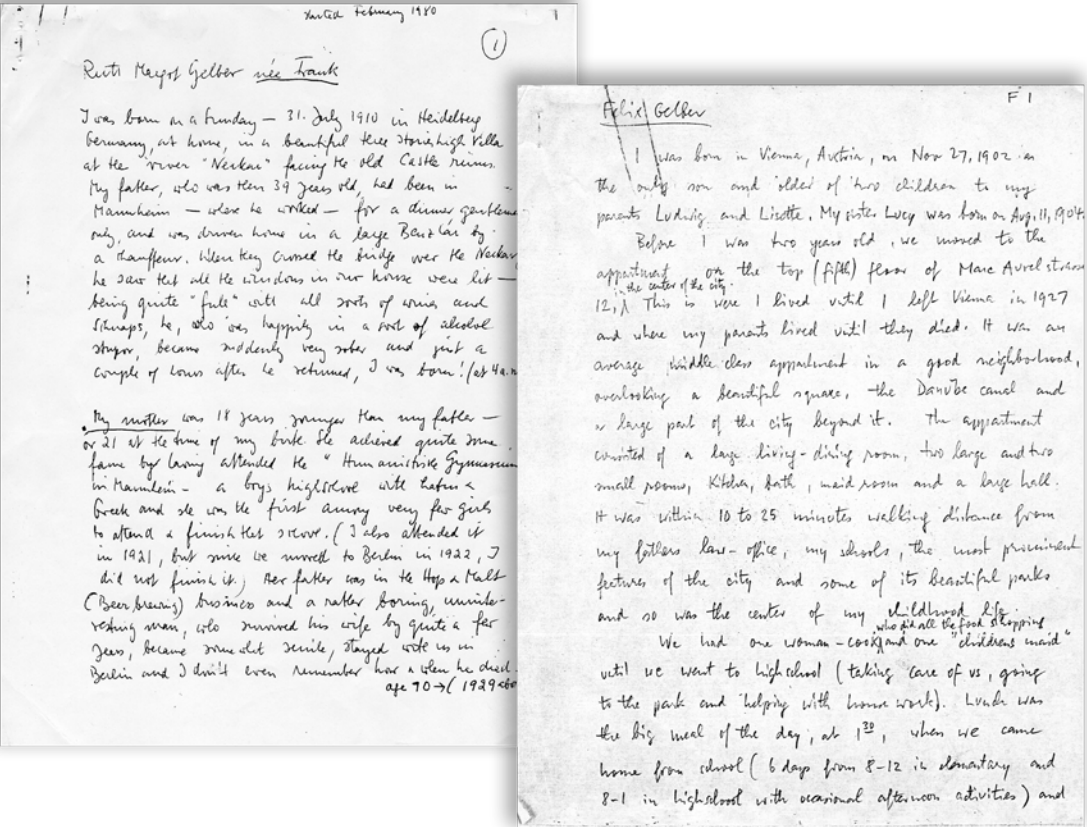 started February 1980
1
1
Ruth Margot Gelber née Frank
I was born on a Sunday – 31. July 1910 in Heidelberg
Germany, at home, in a beautiful three stories high Villa
at the river "Neckar" facing the old Castle ruins.
My father, who was then 39 years old, had been in
Mannheim – where he worked – for a dinner, gentlemen
only, and was driven home in a large Benz car by
a chauffeur. When they crossed the bridge over the Neckar
he saw that all the windows in our house were lit –
being quite "full" with all sorts of wines and
Schnaps, he, who was happily in a sort of alcohol
stupor, became suddenly very sober and just a
couple of hours after he returned, I was born! (at 4 a.m
My mother was 18 years younger than my father –
or 21 at the time of my birth. She achieved quite some
fame by having attended the "Humanistische Gymnasium
in Mannheim – a boys highschool with Latin &
Greek and she was the first among very few girls
to attend & finish that school. (I also attended it
in 1921, but since we moved to Berlin in 1922, I
did not finish it.) Her father was in the Hops & Malt
(Beer brewing) business and a rather boring, uninte-
resting man, who survived his wife by quite a few
years, became somewhat senile, stayed with us in
Berlin and I don't even remember how & when he died.
age 70 → (1929
F 1
Felix Gelber
I was born in Vienna, Austria, on Nov 27, 1902 as
the only son and older of two children to my
parents Ludwig and Lisette. My sister Lucy was born on Aug. 11, 1904.
Before I was two years old, we moved to the
appartment on the top (fifth) floor of Marc Aurel strasse
in the center of the city.
12, This is were I lived until I left Vienna in 1927
and where my parents lived until they died. It was an
average middle class appartment in a good neighborhood,
overlooking a beautiful square, the Danube canal and
a large part of the city beyond it. The appartment
consisted of a large living-dining room, two large and two
small rooms, Kitchen, bath, maid room and a large hall.
It was within 10 to 25 minutes walking distance from
my fathers law-office, my schools, the most prominent
features of the city and some of its beautiful parks
and so was the center of my childhood life.
who did all the food shopping
We had one woman-cook and one "childrens maid"
until we went to highschool (taking care of us, going
to the park and helping with home work). Lunch was
the big meal of the day, at 1 30, when we came
home from school (6 days from 8-12 in elementary and
8-1 in highschool with occasional afternoon activities) and